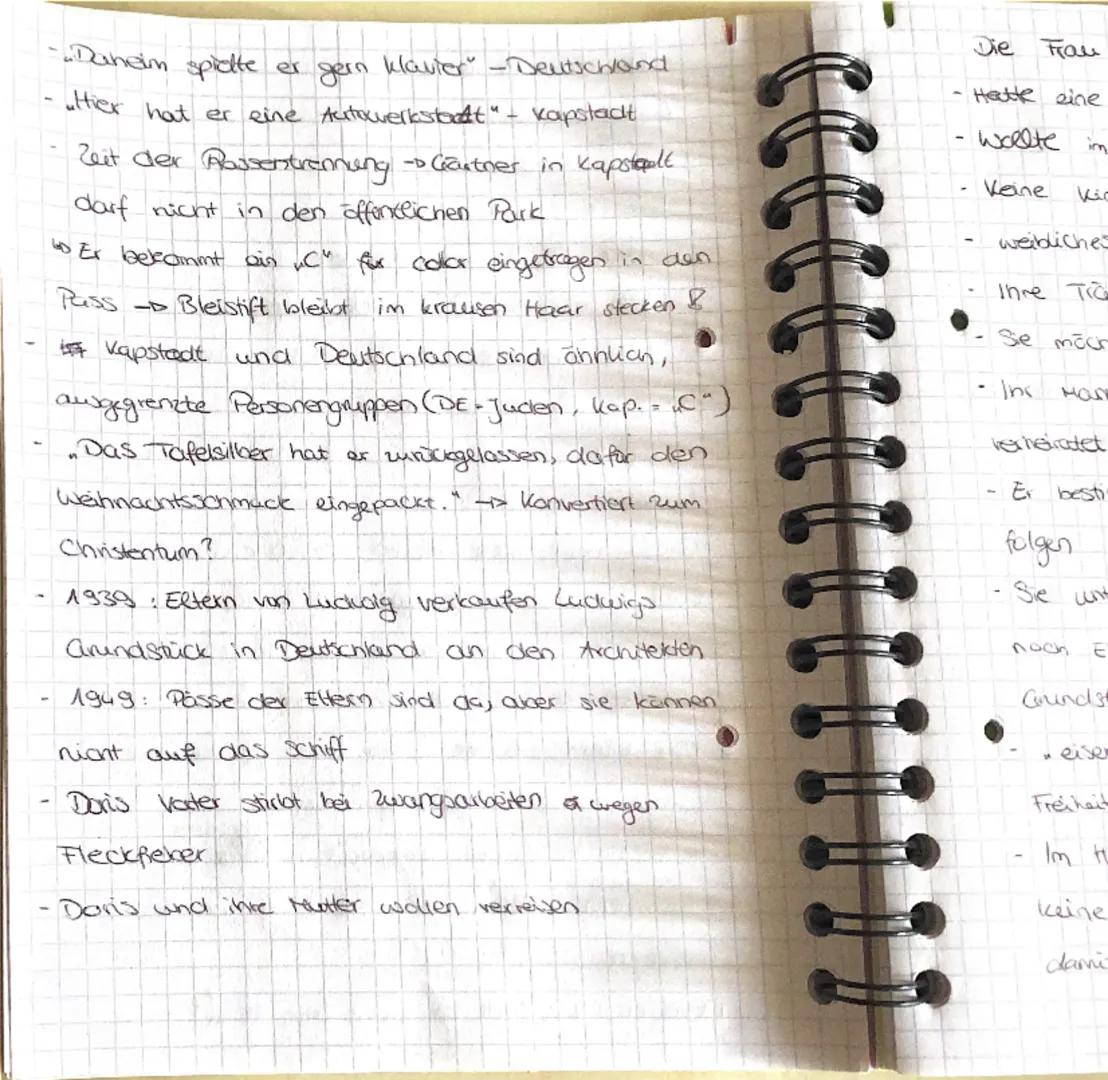 - „Daheim spielte er gern Klavier" - Deutschland
- „Hier hat er eine Autowerkstadt" - Kapstadt
- Zeit der Rassentrennung → Gärtner in Kapstadt
darf nicht in den öffentlichen Park
↳ Er bekommt ein „C" für color eingetragen in den
Pass → Bleistift bleibt im krausen Haar stecken
- Kapstadt und Deutschland sind ähnlich,
ausgegrenzte Personengruppen (DE - Juden, Kap. = „C")
- „Das Tafelsilber hat er zurückgelassen, dafür den
Weihnachtsschmuck eingepackt." → Konvertiert zum
Christentum?
- 1939: Eltern von Ludwig verkaufen Ludwigs
Grundstück in Deutschland an den Architekten
- 1949: Pässe der Eltern sind da, aber sie können
nicht auf das Schiff
- Doris Vater stirbt bei Zwangsarbeiten wegen
Fleckfieber
- Doris und ihre Mutter wollen verreisen
Die Frau
- Hatte eine
- Wollte im
- Keine
- weibliches
- Ihre
- Sie
- Ihr
verheiratet
- Er
folgen
- Sie
noch
- „
- Im
keine